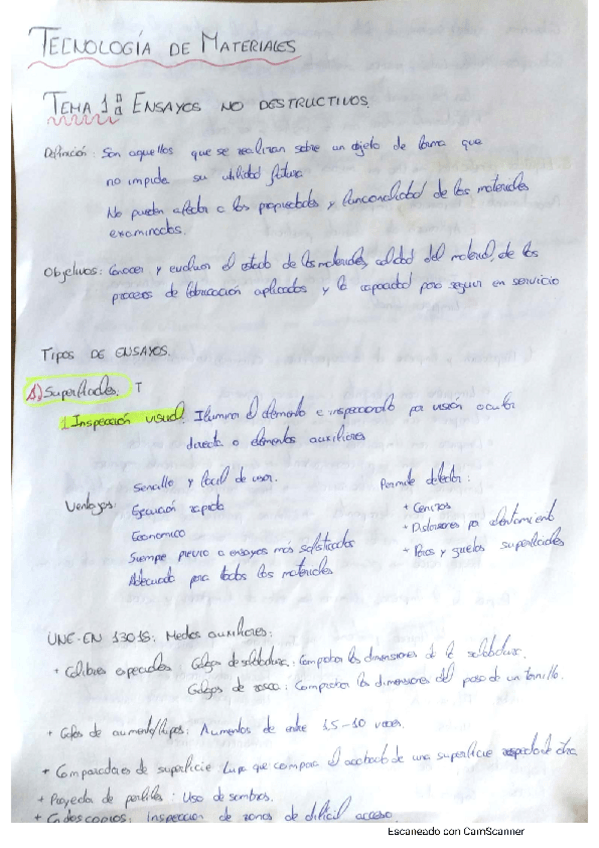 TECNOLOGÍA DE MATERIALES
TEMA 1: ENSAYOS NO DESTRUCTIVOS.
Definición: Son aquellos que se realizan sobre un objeto de forma que
no impida su utilidad futura
No pueden afectar a las propiedades y funcionalidad de los materiales
examinados.
Objetivos: Conocer y evaluar el estado de los materiales, calidad del material, de los
procesos de fabricación aplicados y la capacidad para seguir en servicio
TIPOS DE ENSAYOS.
A) Superficiales. T
1. Inspección visual. Iluminar el elemento e inspeccionarlo por visión ocular
directa o elementos auxiliares
Ventajas: Sencillo y fácil de usar.
Ejecución rápida
Económico
Siempre previo a ensayos más sofisticados
Adecuado para todos los materiales
Permite detectar:
+ Cenizas
+ Distorsiones por calentamiento
+ Poros y grietas superficiales
UNE-EN 13018: Medios auxiliares:
+ Calibres especiales: Galgas de soldadura: Comprobar las dimensiones de la soldadura.
Galgas de rosca: Comprobar las dimensiones del paso de un tornillo.
+ Gafas de aumento/lupas: Aumentos de entre 1,5-10 veces.
+ Comparadores de superficie: Lupa que compara el acabado de una superficie respecto otra
+ Proyector de perfiles: Uso de sombras.
+ Endoscopios: Inspección de zonas de difícil acceso.
Escaneado con CamScanner